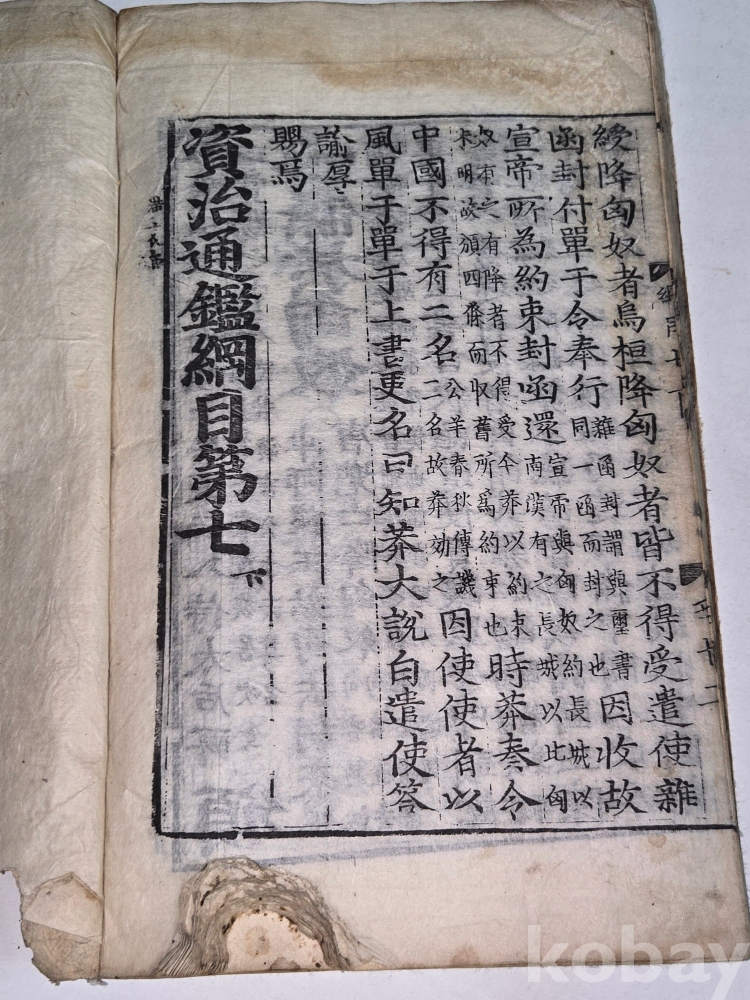 綬降匈奴者烏桓降匈奴者皆不得受遣使雜
函封付單于令奉行雜函封謂與璽書同一函而封之也因收故
宣帝所為約束封函還宣帝與匈奴約長城以南漢有之長城以北匈
奴有之有降者不得受今莽以約束未明故頒四條而收舊所爲約束也時莽奏令
中國不得有二名公羊春秋傳譏二名故莽効之因使使者以
風單于單于上書更名曰知莽大說白遣使答
諭厚
賜焉
資治通鑑綱目第七下
kobay